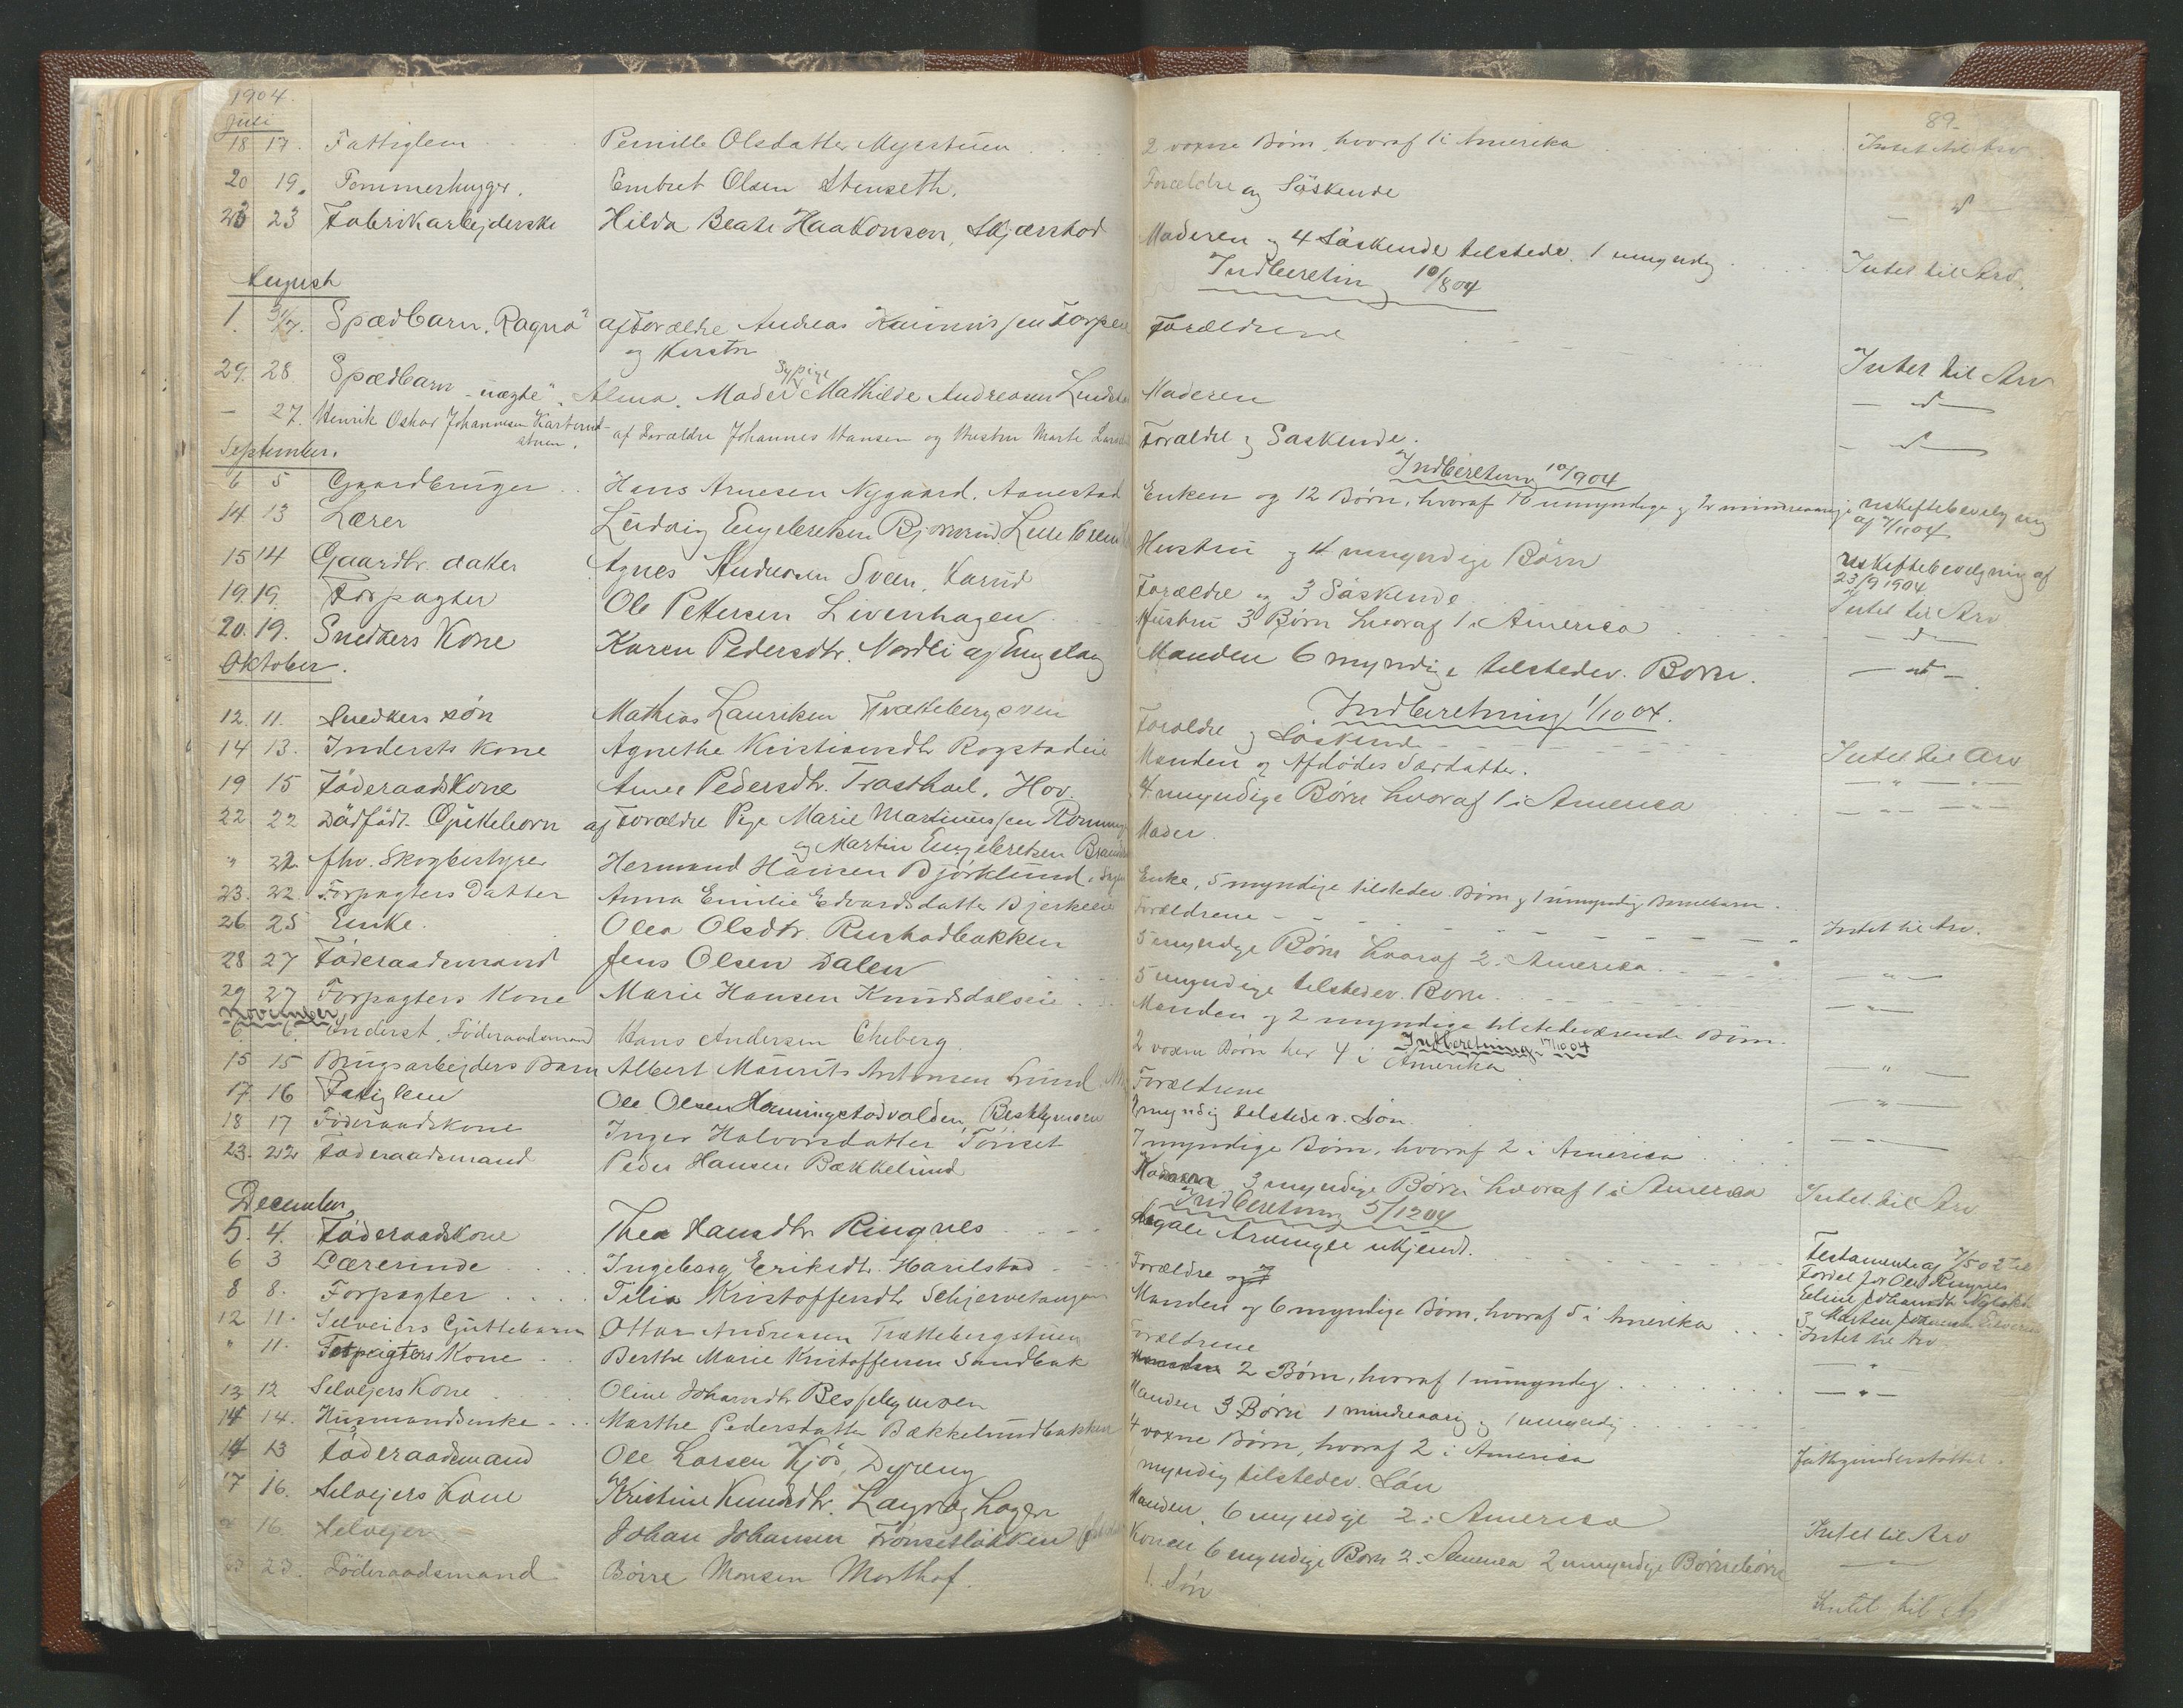 1904.
Juli
18 17. Fattiglem Pernille Olsdatter Myrstuen
20 19. Tømmerhugger. Embret Olsen Stenseth.
23 23 Fabrikarbejderske Hilda Beate Haakonsen, Skjærstad
August
1. 31/7. Spædbarn "Ragna" af Forældre Andreas
og Kirstin
29. 28 Spædbarn uægte". Alma. Moder Sypige Mathilde Andreasen
— 27. Henrik Oskar Johannesen
stuen. af Forældre Johannes Hansen og Hustru Marte
September.
6 5 Gaardbruger Hans Arnesen Nygaard. Aanestad
14 13 Lærer Ludvig Engebretsen
15 14 Gaardbr. datter Agnes Andreasen Sveen, Karud
19. 19. Forpagter Ole Pettersen Livenhagen
20. 19. Snedkers Kone Karen Pedersdtr. Nordli af Engelaug
Oktober.
12. 11. Snedkers søn Mathias Lauritsen Trættebergstuen
14 13. Inderts kone Agnethe Kristiansdtr Rogstadeie
19 15 Föderaadskone Anne Pedersdtr. Trasthael. Hov.
22 22 Dødfødt Guttebarn af Forældre Pige Marie Martinussen
og Martin Engebretsen
" 22. fhv. Skogbestyrer Hermand Hansen Björklund.
23. 22. Forpagters Datter Anna Emilie Edvardsdatter Bjerkeeie
26. 25 Enke. Olea Olsdtr. Rustadbakken
28 27 Föderaadsmand Jens Olsen Dalen
29 27 Forpagters Kone Marie Hansen Knudsdalseie
November
6. 6. Inderst. Föderaadsmand Hans Andersen Ekeberg.
15 15 Brugsarbejders Barn Albert Maurits Antonsen Lund
17 16 Fatiglem Ole Olsen Horningstadvolden
18 17 Föderaadskone Inger Halvorsdatter Tönset
23. 22 Föderaadsmand Peder Hansen Bækkelund
December
5. 4. Föderaadskone Thea Hansdtr Ringnes
6 3 Lærerinde Ingeborg Eriksdtr. Harilstad
8 8. Forpagter Tilia Kristoffersdtr Schjervetangen
12 11. Selveiers Guttebarn Ottar Andreasen Trættebergstuen
" 11. Forpagters Kone Berthe Marie Kristoffersen Sandbak
13 12 Selvejers Kone Oline Johansdtr
14 14. Husmandsenke Marthe Pedersdatter Bækkelundbakken
14 13 Föderaadsmand Ole Larsen Kjös, Dyreng
17 16. Selvejers Kone Kristine Knudsdtr.
" 16. Selvejer Johan Johansen
23 23. Föderaadsmand Börre Monsen Morthof.
89.
2 voxne Børn, hvoraf 1 i Amerika Intet til Arv
Forældre og Söskende
Moderen og 4 Söskende tilstede. 1 umyndig Intet til Arv.
Indberetning 10/8 04
Forældrene Intet til Arv
Moderen
Forældre og Søskende.
Indberetning 10/9 04
Enken og 12 Børn, hvoraf 10 umyndige og 2 mindreaarige uskiftebevilgning
af 7/11 04
Hustru og 4 umyndige Børn uskiftebevilgning af
23/9 1904
Forældre og 3 Söskende Intet til Arv
Hustru 3 Børn hvoraf 1 i America
Manden 6 myndige tilstedev. Børn.
Indberetning 1/10 04.
Forældre og Söskende Intet til Arv
Manden og Afdødes Særdatter.
4 myndige Børn hvoraf 1 i America
Moder.
Enke, 5 myndige tilstedev. Børn og 1 umyndig Barnebarn.
Forældrene Intet til Arv.
5 myndige Børn hvoraf 2 i America
5 myndige tilstedev. Børn
Manden og 2 myndige tilstedeværende Børn.
Indberetning 17/10 04
2 voxne Børn her 4 i Amerika
Forældrene
2 myndig tilstedev. Søn.
7 myndige Børn, hvoraf 2 i America
3 myndige Børn hvoraf 1 i America Intet til Arv
Indberetning 5/12 04
Legale Arvinger ukjendt. Testamente af 7/5 02 til
Fordel for Ole Ringnes
Forældre og
Manden og 6 myndige Børn, hvoraf 5 i Amerika
Intet til Arv
Forældrene
2 Børn, hvoraf 1 umyndig
Manden 3 Børn 1 mindreaarig og 1 umyndig
4 voxne Børn, hvoraf 2 i America Fattigunderstøttet.
myndig tilstedev. Søn
Manden. 6 myndige 2 i America Intet til Arv
Konen 6 myndige Børn 2 i America 2 umyndige Børnebørn
1. Søn Intet til Arv